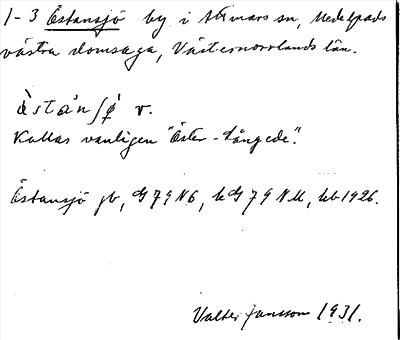 1-3 Östansjö by i Attmars sn, Medelpads
västra domsaga, Västernorrlands län.
ö̀stanʃø̨ v.
Kallas vanligen "Öster-Långede".
Östansjö jb, G 79 N6, kG 79 NM, kb 1926.
Valter Jansson 1931.